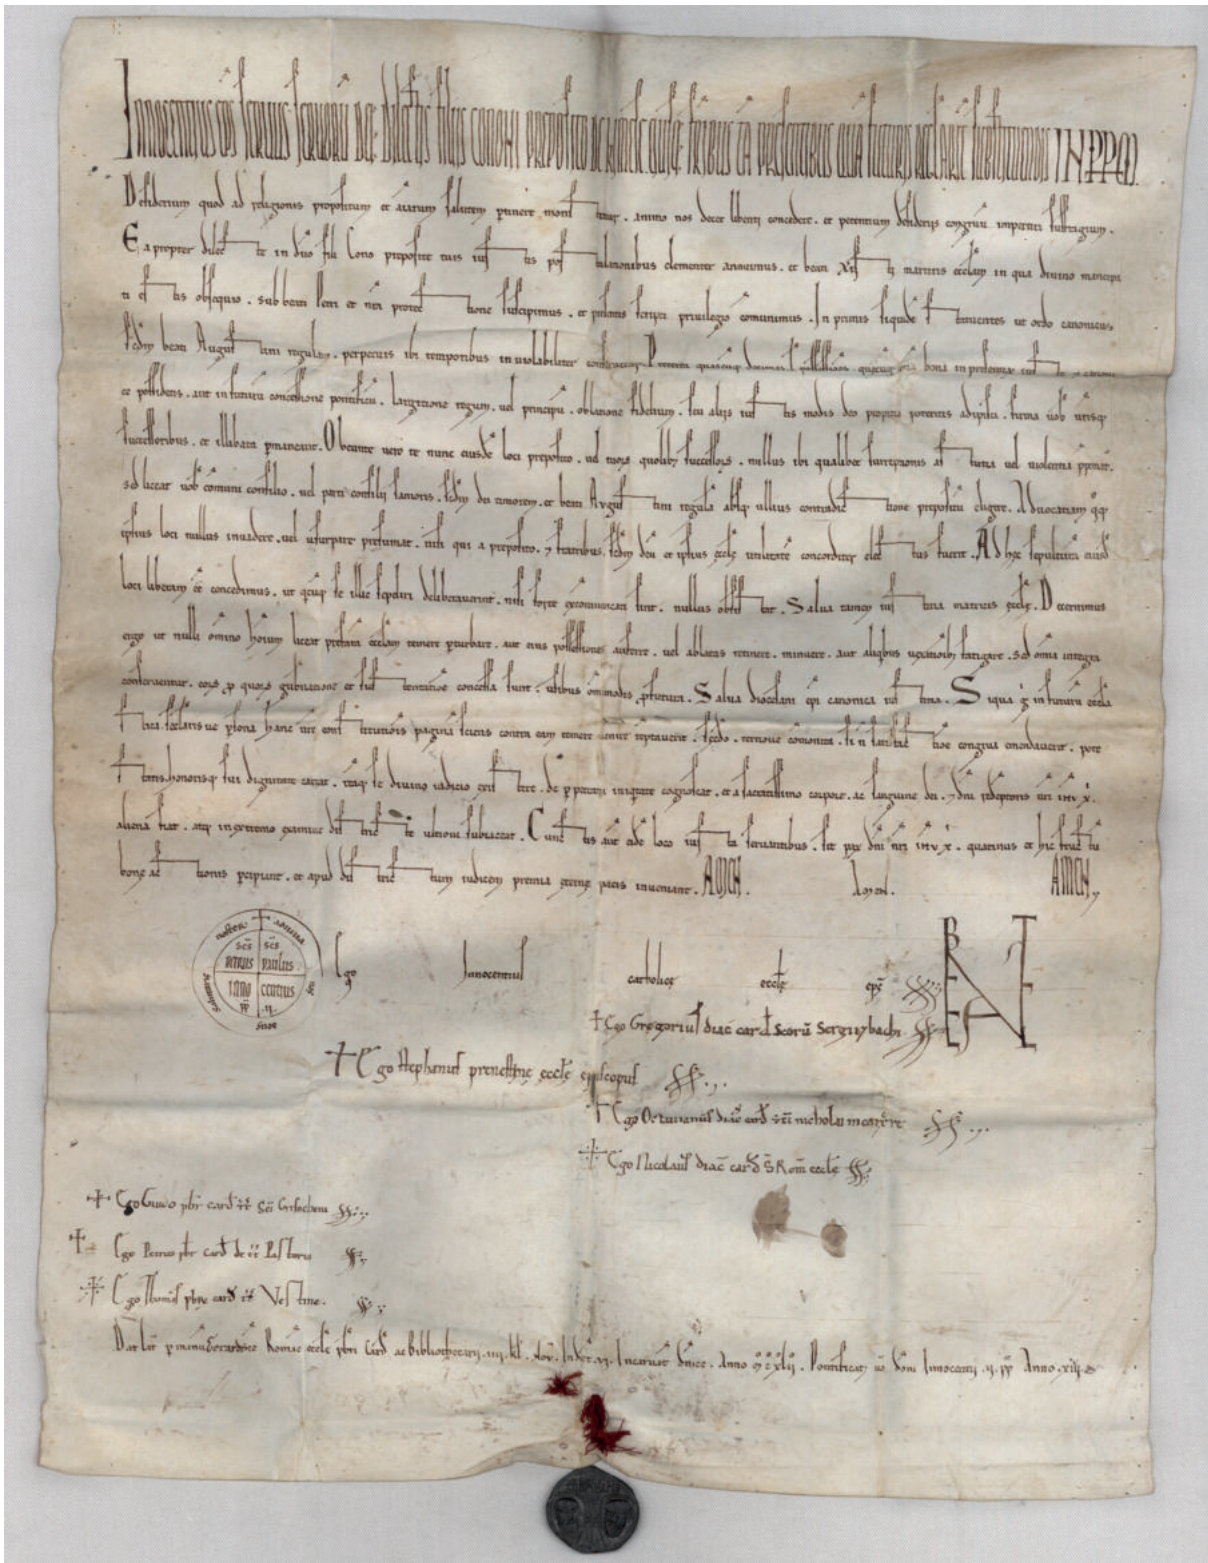 Innocentius eps seruus seruoru dei. Dilectis filiis Cononi preposito eiusque fribus ta presentibus qua futuris regularite substituendis IN PPM.
Desiderium quod ad religionis propositum et aiarum salutem ptinere monstratur. animo nos decet libenti concedere. et petentium desideriis congruu impertiri suffragium.
Ea propter dilecte in dno fili Cono preposite tuis iustis postulationibus clementer annuimus. et beati Xisti martiris ecclam in qua diuino mancipa
ti estis obsequio. sub beati Petri et nra protectione suscipimus. et presentis scripti priuilegio comunimus. In primis siquide statuentes ut ordo canonicus
scdm beati Augustini regulam. perpetuis ibi temporibus inuiolabiliter conseruetur. Preterea quascuq possessiones quecuq bona inpresentiaru iuste et canoni
ce possidetis. aut in futuru concessione pontificu. largitione regum. uel principu. oblatione fidelium. seu aliis iustis modis deo propitio poteritis adipisci. firma uob urisq
successoribus. et illibata pmaneant. Obeunte uero te nunc eiusde loci preposito. uel tuoru quolibet successoru. nullus ibi qualibet surreptionis astutia uel uiolentia pponat.
sed liceat uob comuni consilio. uel parti consilii sanioris. scdm dei timorem. et beati Augustini regula absq ullius contradictione prepositu eligere. Aduocatiam qoq
ipsius loci nullus inuadere. uel usurpare presumat. nisi qui a preposito. 7 fratribus. scdm deu et ipsius eccle utilitate concorditer electus fuerit. Ad hec sepultura eiusd
loci liberam ee concedimus. ut qcuq se illic sepeliri deliberauerint. nisi forte excommunicati sint. nullus obsistat. Salua tamen iustitia matricis eccle. Decernimus
ergo ut nulli omino hoium liceat prefata ecclam temere pturbare. aut eius possessiones auferre. uel ablatas retinere. minuere. aut aliqbus uexatioib fatigare. sed omnia integra
conseruentur. eoru p quoru gubnatione et sustentatione concessa sunt. usibus omimodis pfutura. Salua diocesani epi canonica iustitia. Siqua g in futuru ecclesia
stica. seclarisue psona hanc nre constitutionis pagina sciens contra eam temere uenire teptauerit. scdo. tertioue comonita. si n satisfactioe congrua emendauerit. pote
statis honorisq sui dignitate careat. reaq se diuino iudicio existere. de ppetrata iniqtate cognoscat. et a sacratissimo corpore. ac sanguine dei. 7 dni redeptoris nri ihu x.
aliena fiat. atq in extremo examine districte ultioni subiaceat. Cunctis aut eide loco iusta seruantibus. sit pax dni nri ihu x. quatinus et hic fructu
bone actionis percipiant. et apud districtum iudicem premia eterne pacis inueniant. AMEN. Amen. AMEN
adiuua nos deus salutaris noster
scs PETRUS scs PAULUS INNOCENTIUS PP .II.
Ego Innocentius catholice eccle eps
+ Ego Gregorius diac card scoru Sergii 7 bachi
+ Ego Stephanus prenestine eccle episcopus
+ Ego Octauianus diac card sci nicholai in carcere
+ Ego Nicolaus diac card S Rom eccle
+ Ego Guido pbr card tt Sci Grisochoni
+ Ego Petrus pbr card de tt Pastoris
+ Ego Thomas pbre card tt Vestine.
Dat Lat p manu Gerardi sce Romae eccle pbri Card ac Bibliothecarii. Indict. v. Incarnat dnice. Anno M C XLII. Pontificat u domi Innocentii .II. pp Anno .XIII.